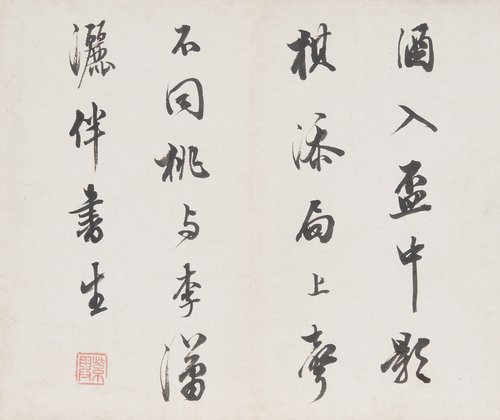 酒入盃中影
棋添局上聲
不同桃与李瀟
灑伴書生